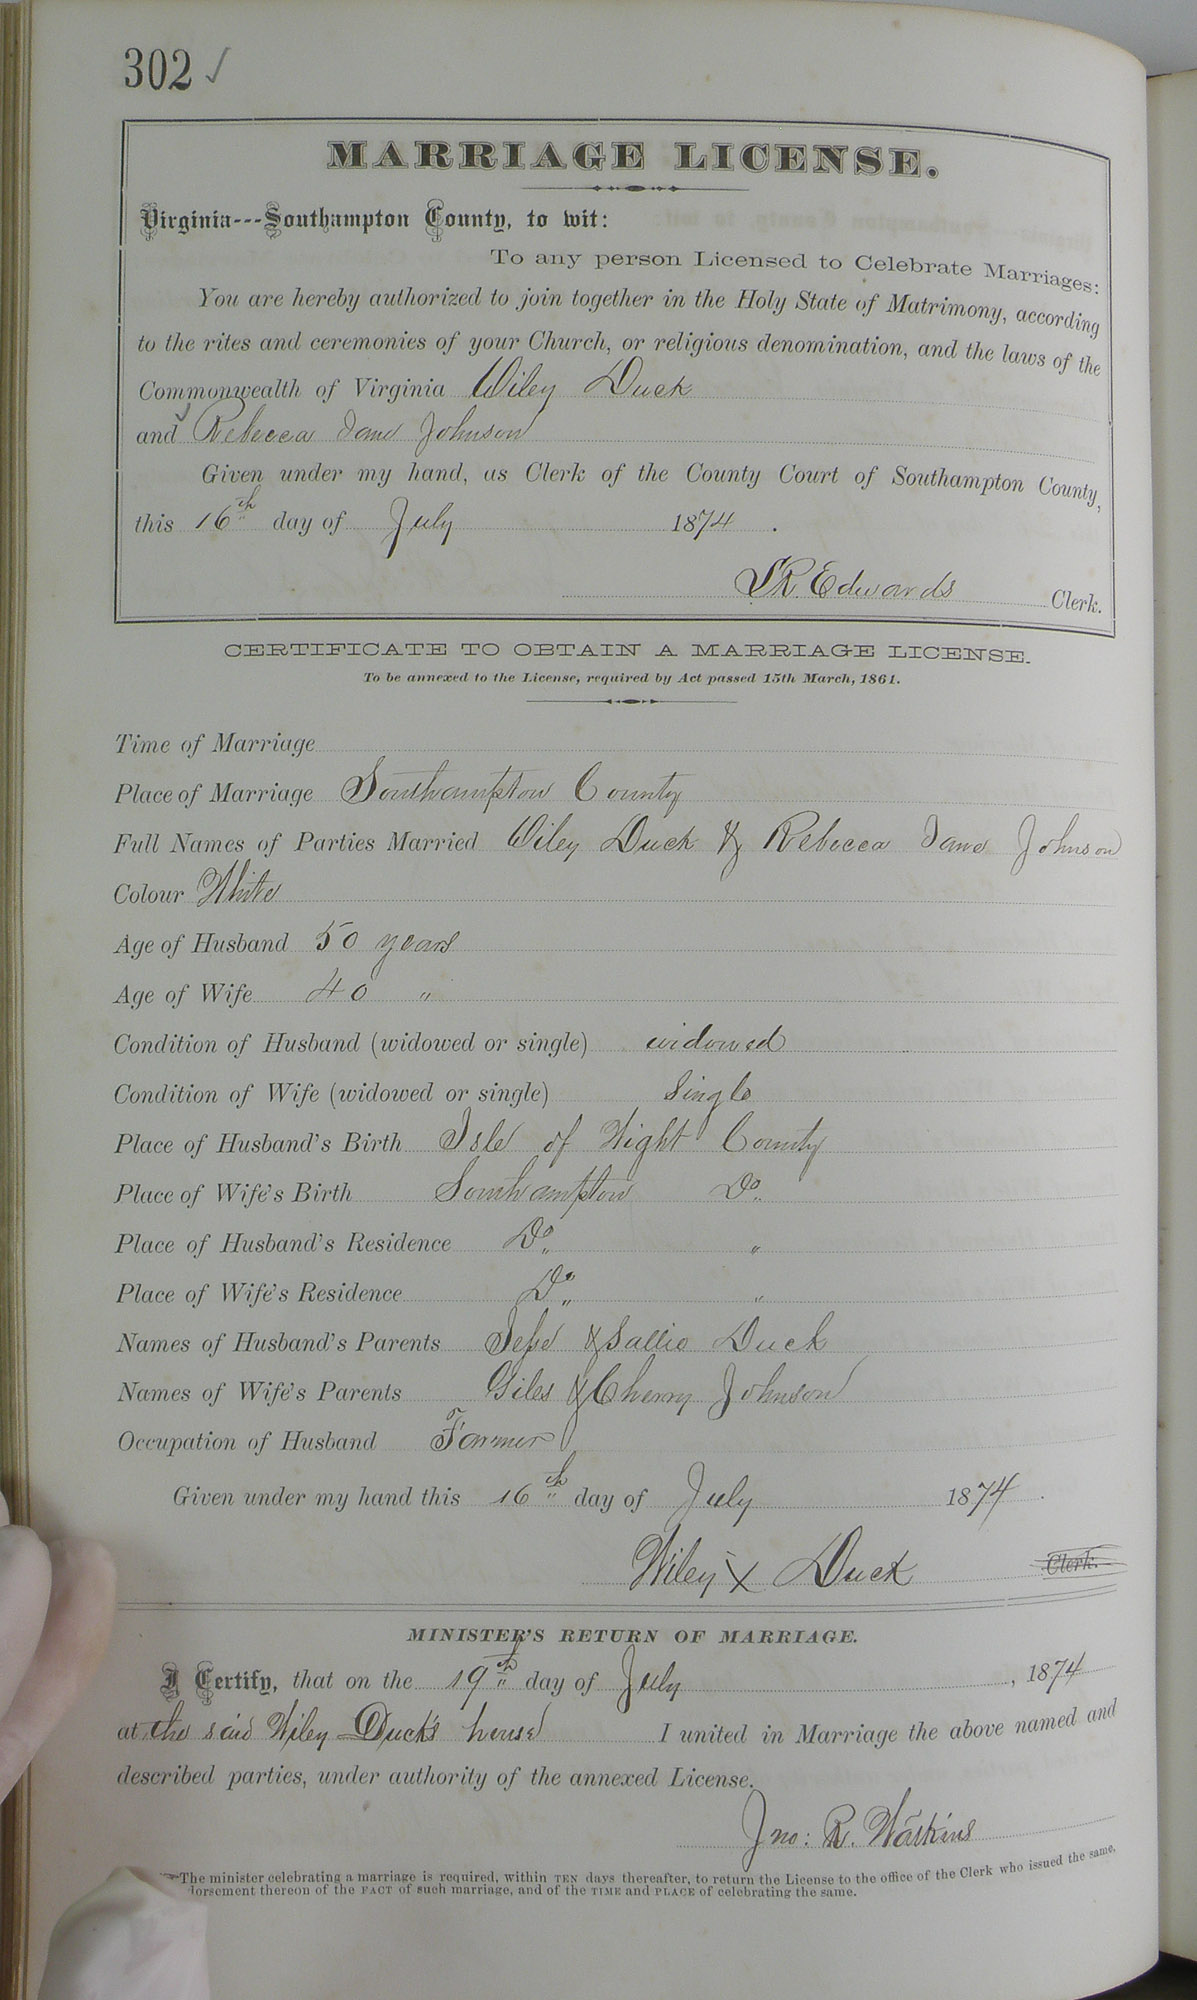 302 ✓
MARRIAGE LICENSE.
Virginia---Southampton County, to wit:
To any person Licensed to Celebrate Marriages:
You are hereby authorized to join together in the Holy State of Matrimony, according
to the rites and ceremonies of your Church, or religious denomination, and the laws of the
Commonwealth of Virginia Wiley Duck
and Rebecca Jane Johnson
Given under my hand, as Clerk of the County Court of Southampton County,
this 16th day of July 1874.
S R. Edwards Clerk.
CERTIFICATE TO OBTAIN A MARRIAGE LICENSE.
To be annexed to the License, required by Act passed 15th March, 1861.
Time of Marriage
Place of Marriage Southampton County
Full Names of Parties Married Wiley Duck & Rebecca Jane Johnson
Colour White
Age of Husband 50 years
Age of Wife 40 "
Condition of Husband (widowed or single) widowed
Condition of Wife (widowed or single) Single
Place of Husband's Birth Isle of Wight County
Place of Wife's Birth Southampton Do
Place of Husband's Residence Do "
Place of Wife's Residence Do "
Names of Husband's Parents Jesse & Sallie Duck
Names of Wife's Parents Giles & Cherry Johnson
Occupation of Husband Farmer
Given under my hand this 16th day of July 1874.
Wiley X Duck Clerk.
MINISTER'S RETURN OF MARRIAGE.
I Certify, that on the 19th day of July, 1874
at the said Wiley Duck's house I united in Marriage the above named and
described parties, under authority of the annexed License.
Jno: R. Watkins
The minister celebrating a marriage is required, within TEN days thereafter, to return the License to the office of the Clerk who issued the same,
dorsement thereon of the FACT of such marriage, and of the TIME and PLACE of celebrating the same.